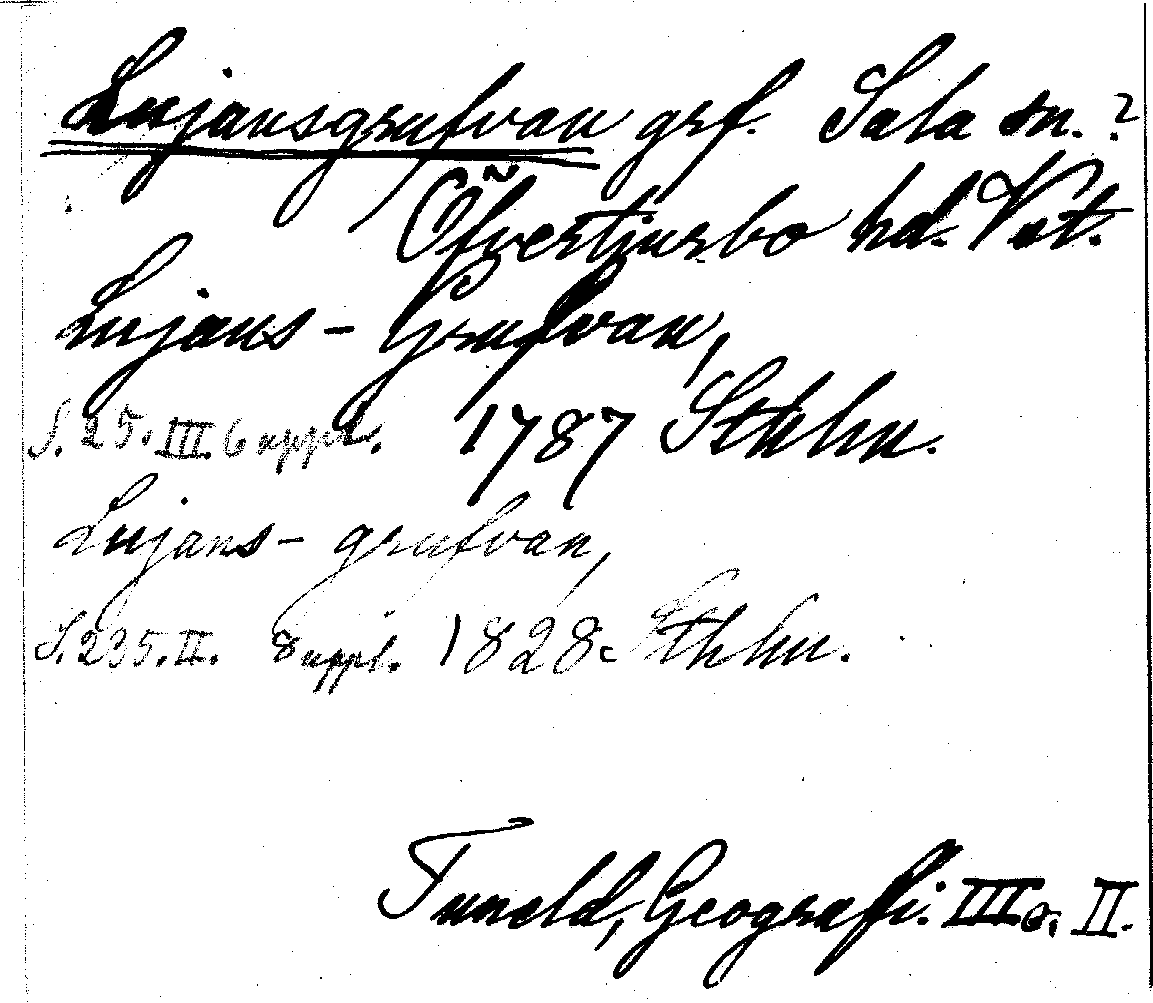 Lujansgrufvan grf. Sala sn.?
Öfvertjurbo hd. Vst.
Lujans - Grufvan,
S. 25. III. 6 uppl. 1787 Sthlm.
Lujans - grufvan,
S. 235. II. 8 uppl. 1828 Sthlm.
Tuneld, Geografi. III o. II.